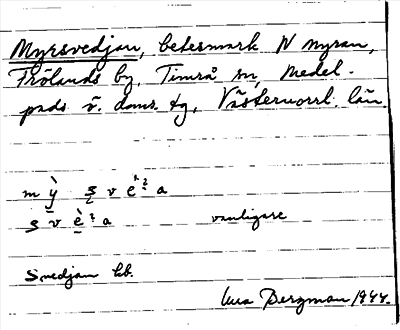 Myrsvedjan, betesmark N myran,
Frölands by, Timrå sn, Medel-
pads v. doms. tg, Västernorrl. län
m y̆̀ ṣ v è ² a
ṣ v è ² a vanligare
Svedjan hb.
Bergman 1944.